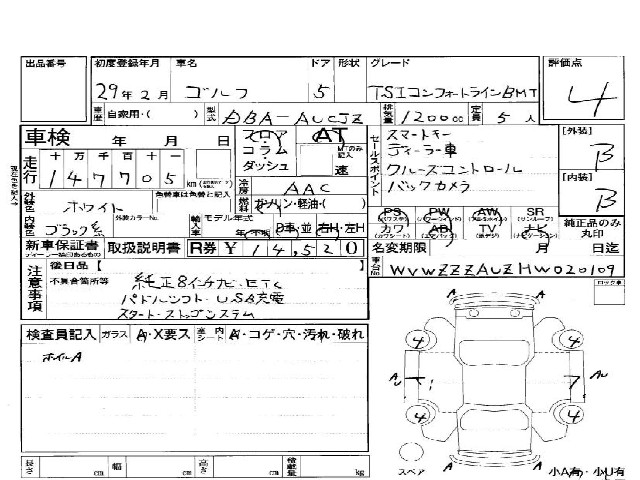 出品番号 初度登録年月 車名 ドア 形状 グレード 評価点
29年2月 ゴルフ 5 TSIコンフォートラインBMT 4
車歴 自家用・( ) 型式 DBA-AUCJZ 排気量 1200cc 定員 5人
車検 年 月 日 フロア・コラム・ダッシュ AT MTのみ記入 速
セールスポイント
スマートキー
ディーラー車
クルーズコントロール
バックカメラ
[外装] B
[内装] B
走行 十万千百十一 147705 km
冷房 AAC
外装色 ホワイト 色替車は色替と記入 燃料 ガソリン・軽油・( )
内装色 ブラック系 外装カラーNo. 輸入車 モデル年式 年 D車・並 右H・左H
PS PW AW SR
カワ AB TV ナビ
純正品のみ丸印
新車保証書 取扱説明書 R券 ¥14,520 名変期限 月 日迄
車台No. WVWZZZAUZHW020109
注意事項 後日品【 】
不具合箇所等
純正8インチナビ・ETC
パドルシフト・USB充電
スタートストップシステム
ロック車
検査員記入 ガラス A・X要ス 室内シート A・コゲ・穴・汚れ・破れ
ホイルA
4 4
AU AU
4 4
長さ cm 幅 cm 高さ cm 積載量 kg
スペア 小A有・小U有